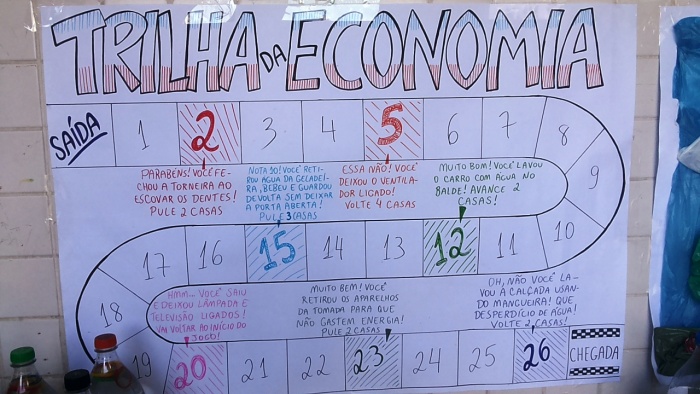 TRILHA DA ECONOMIA
SAÍDA 1 2 3 4 5 6 7 8
9
10
PARABÉNS! VOCÊ FE-
CHOU A TORNEIRA AO
ESCOVAR OS DENTES!
PULE 2 CASAS
NOTA 10! VOCÊ RETI-
ROU AGUA DA GELADEI-
RA, BEBEU E GUARDOU
DE VOLTA SEM DEIXAR
A PORTA ABERTA!
PULE 3 CASAS
ESSA NÃO! VOCÊ
DEIXOU O VENTILA-
DOR LIGADO!
VOLTE 4 CASAS
MUITO BOM! VOCÊ LAVOU
O CARRO COM ÁGUA NO
BALDE! AVANCE 2
CASAS!
17 16 15 14 13 12 11
18
19
HMM... VOCÊ SAIU
E DEIXOU LÂMPADA E
TELEVISÃO LIGADOS!
VAI VOLTAR AO INÍCIO DO
JOGO!
MUITO BEM! VOCÊ
RETIROU OS APARELHOS
DA TOMADA PARA QUE
NÃO GASTEM ENERGIA!
PULE 2 CASAS
OH, NÃO VOCÊ LA-
VOU A CALÇADA USAN-
DO MANGUEIRA! QUE
DESPERDÍCIO DE ÁGUA!
VOLTE 2 CASAS!
20 21 22 23 24 25 26 CHEGADA